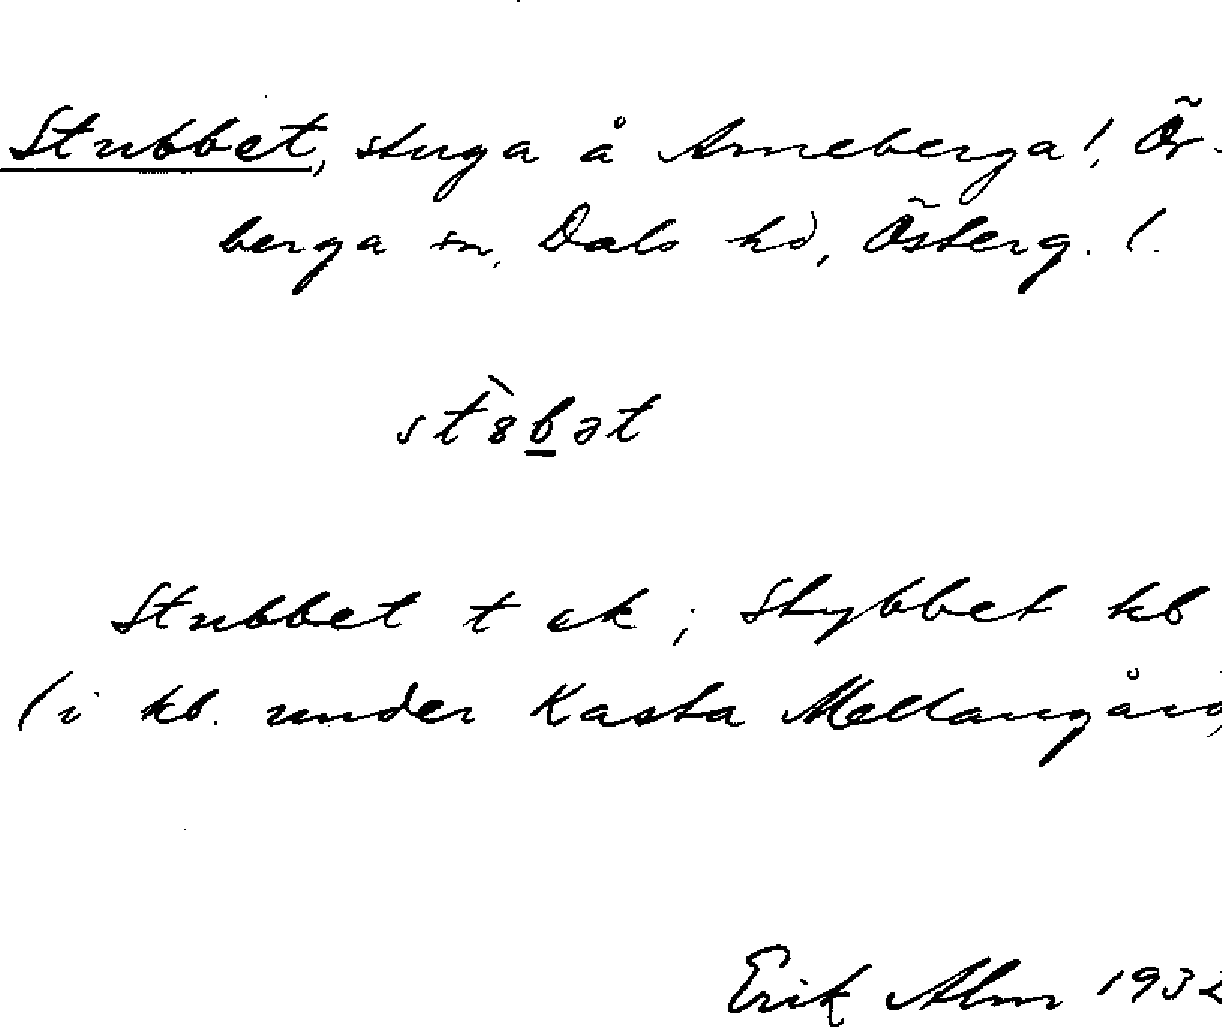 Stubbet, stuga å Arneberga!, Ör-
berga sn, Dals hd, Österg. l.
st8̀b̲ət
Stubbet t ek; Stybbet kb
(i kb. under Kasta Mellangård)
Erik Alm 1932